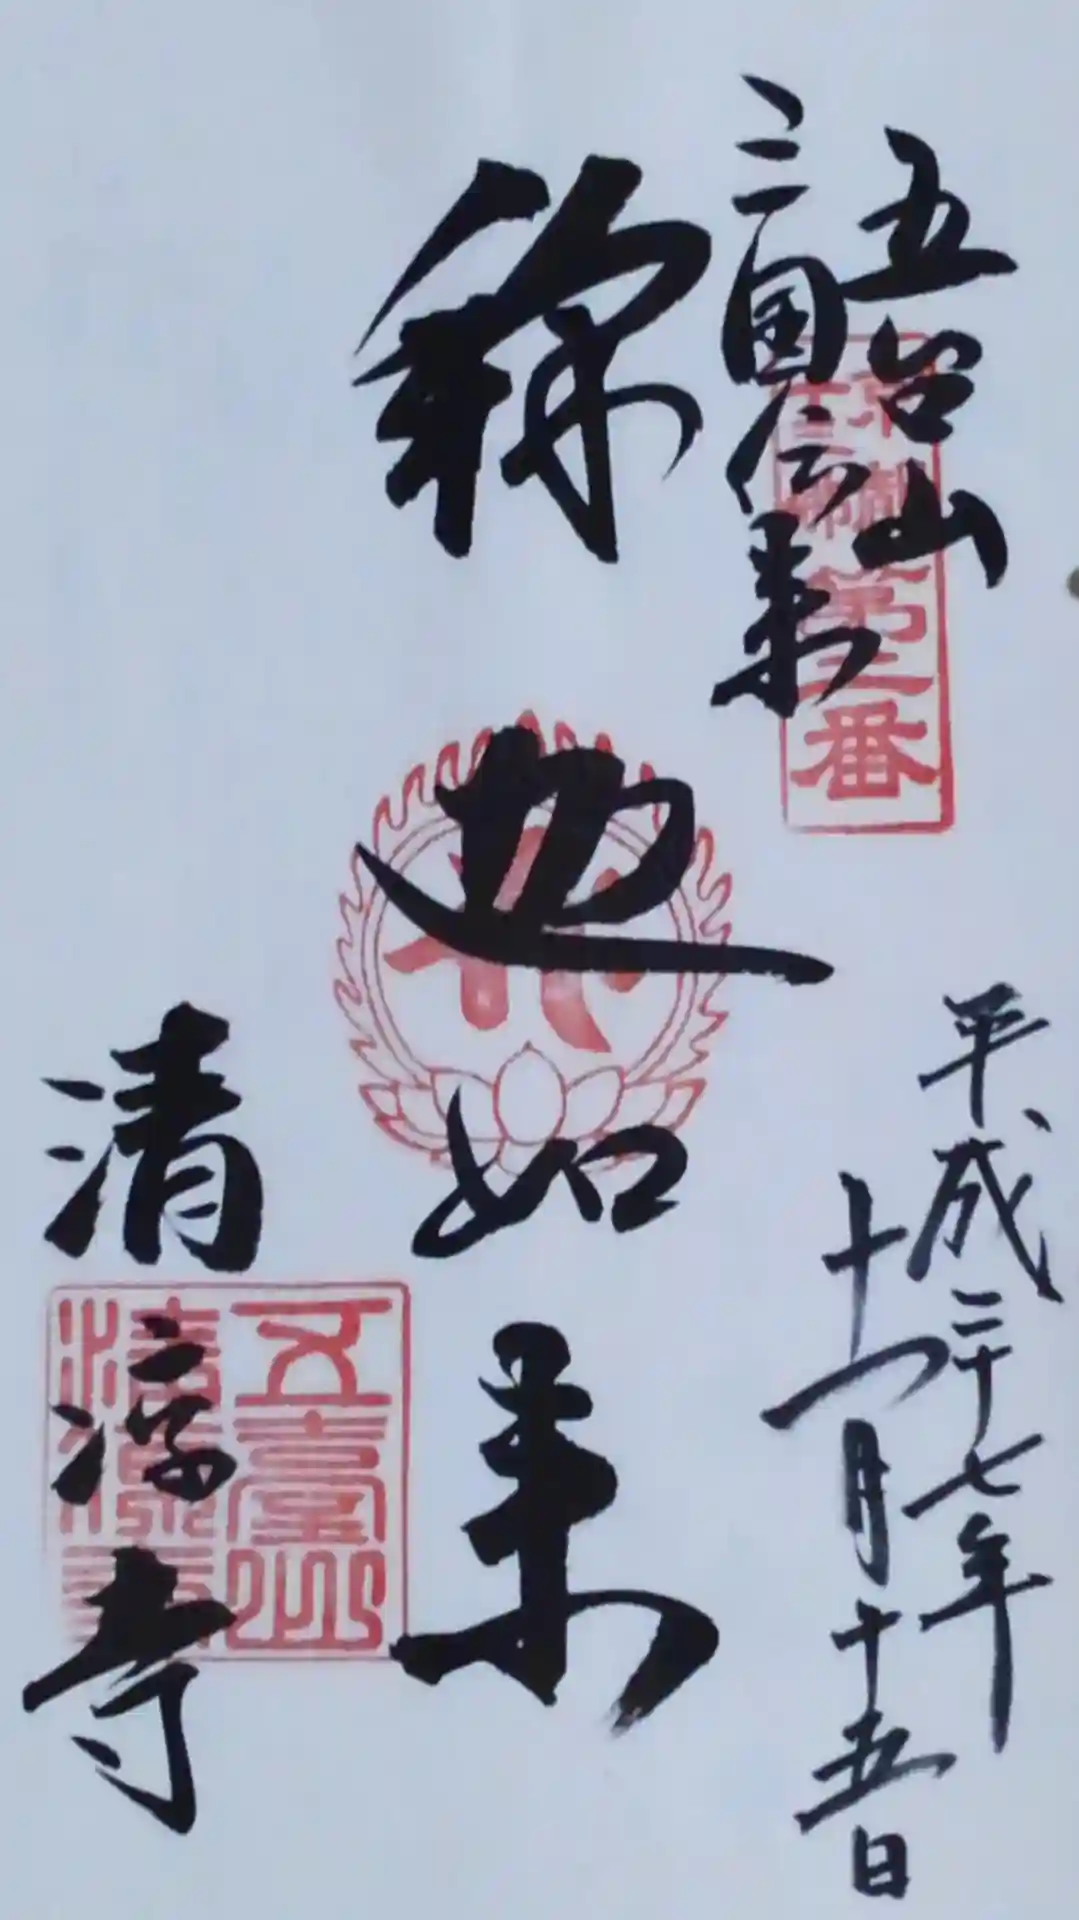 五台山
三国伝来
第二番
釈迦如来
平成二十七年
十一月十五日
清凉寺
五臺山
清凉寺